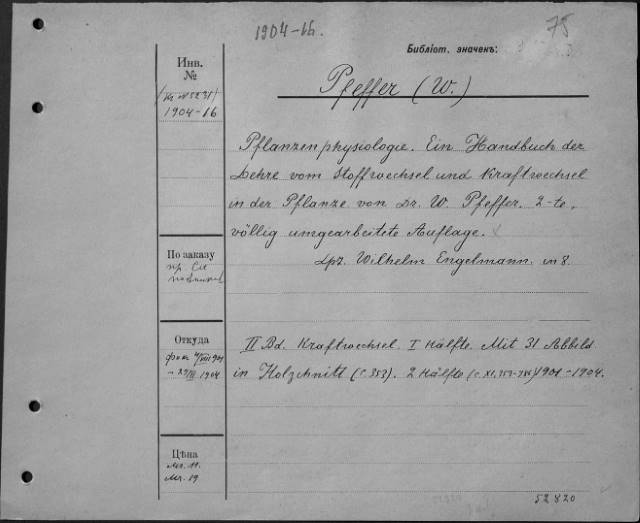 1904-16.
75
Библіот. значекъ:
Инв.
№
1904-16
Pfeffer (W.)
Pflanzenphysiologie. Ein Handbuch der
Lehre vom Stoffwechsel und Kraftwechsel
in der Pflanze von Dr. W. Pfeffer. 2-te,
völlig umgearbeitete Auflage.
Lpz. Wilhelm Engelmann. in 8.
По заказу
Откуда
1904
II Bd. Kraftwechsel. I Hälfte. Mit 31 Abbild
in Holzschnitt (C 353). 2 Hälfte 1901-1904.
Цѣна
Mr. 11.
Mr. 19
52820